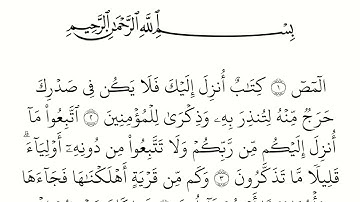 بِسْمِ ٱللَّهِ ٱلرَّحْمَٰنِ ٱلرَّحِيمِ
الٓمٓصٓ ١ كِتَٰبٌ أُنزِلَ إِلَيْكَ فَلَا يَكُن فِى صَدْرِكَ
حَرَجٌ مِّنْهُ لِتُنذِرَ بِهِۦ وَذِكْرَىٰ لِلْمُؤْمِنِينَ ٢ ٱتَّبِعُوا۟ مَآ
أُنزِلَ إِلَيْكُم مِّن رَّبِّكُمْ وَلَا تَتَّبِعُوا۟ مِن دُونِهِۦٓ أَوْلِيَآءَ ۗ
قَلِيلًا مَّا تَذَكَّرُونَ ٣ وَكَم مِّن قَرْيَةٍ أَهْلَكْنَٰهَا فَجَآءَهَا